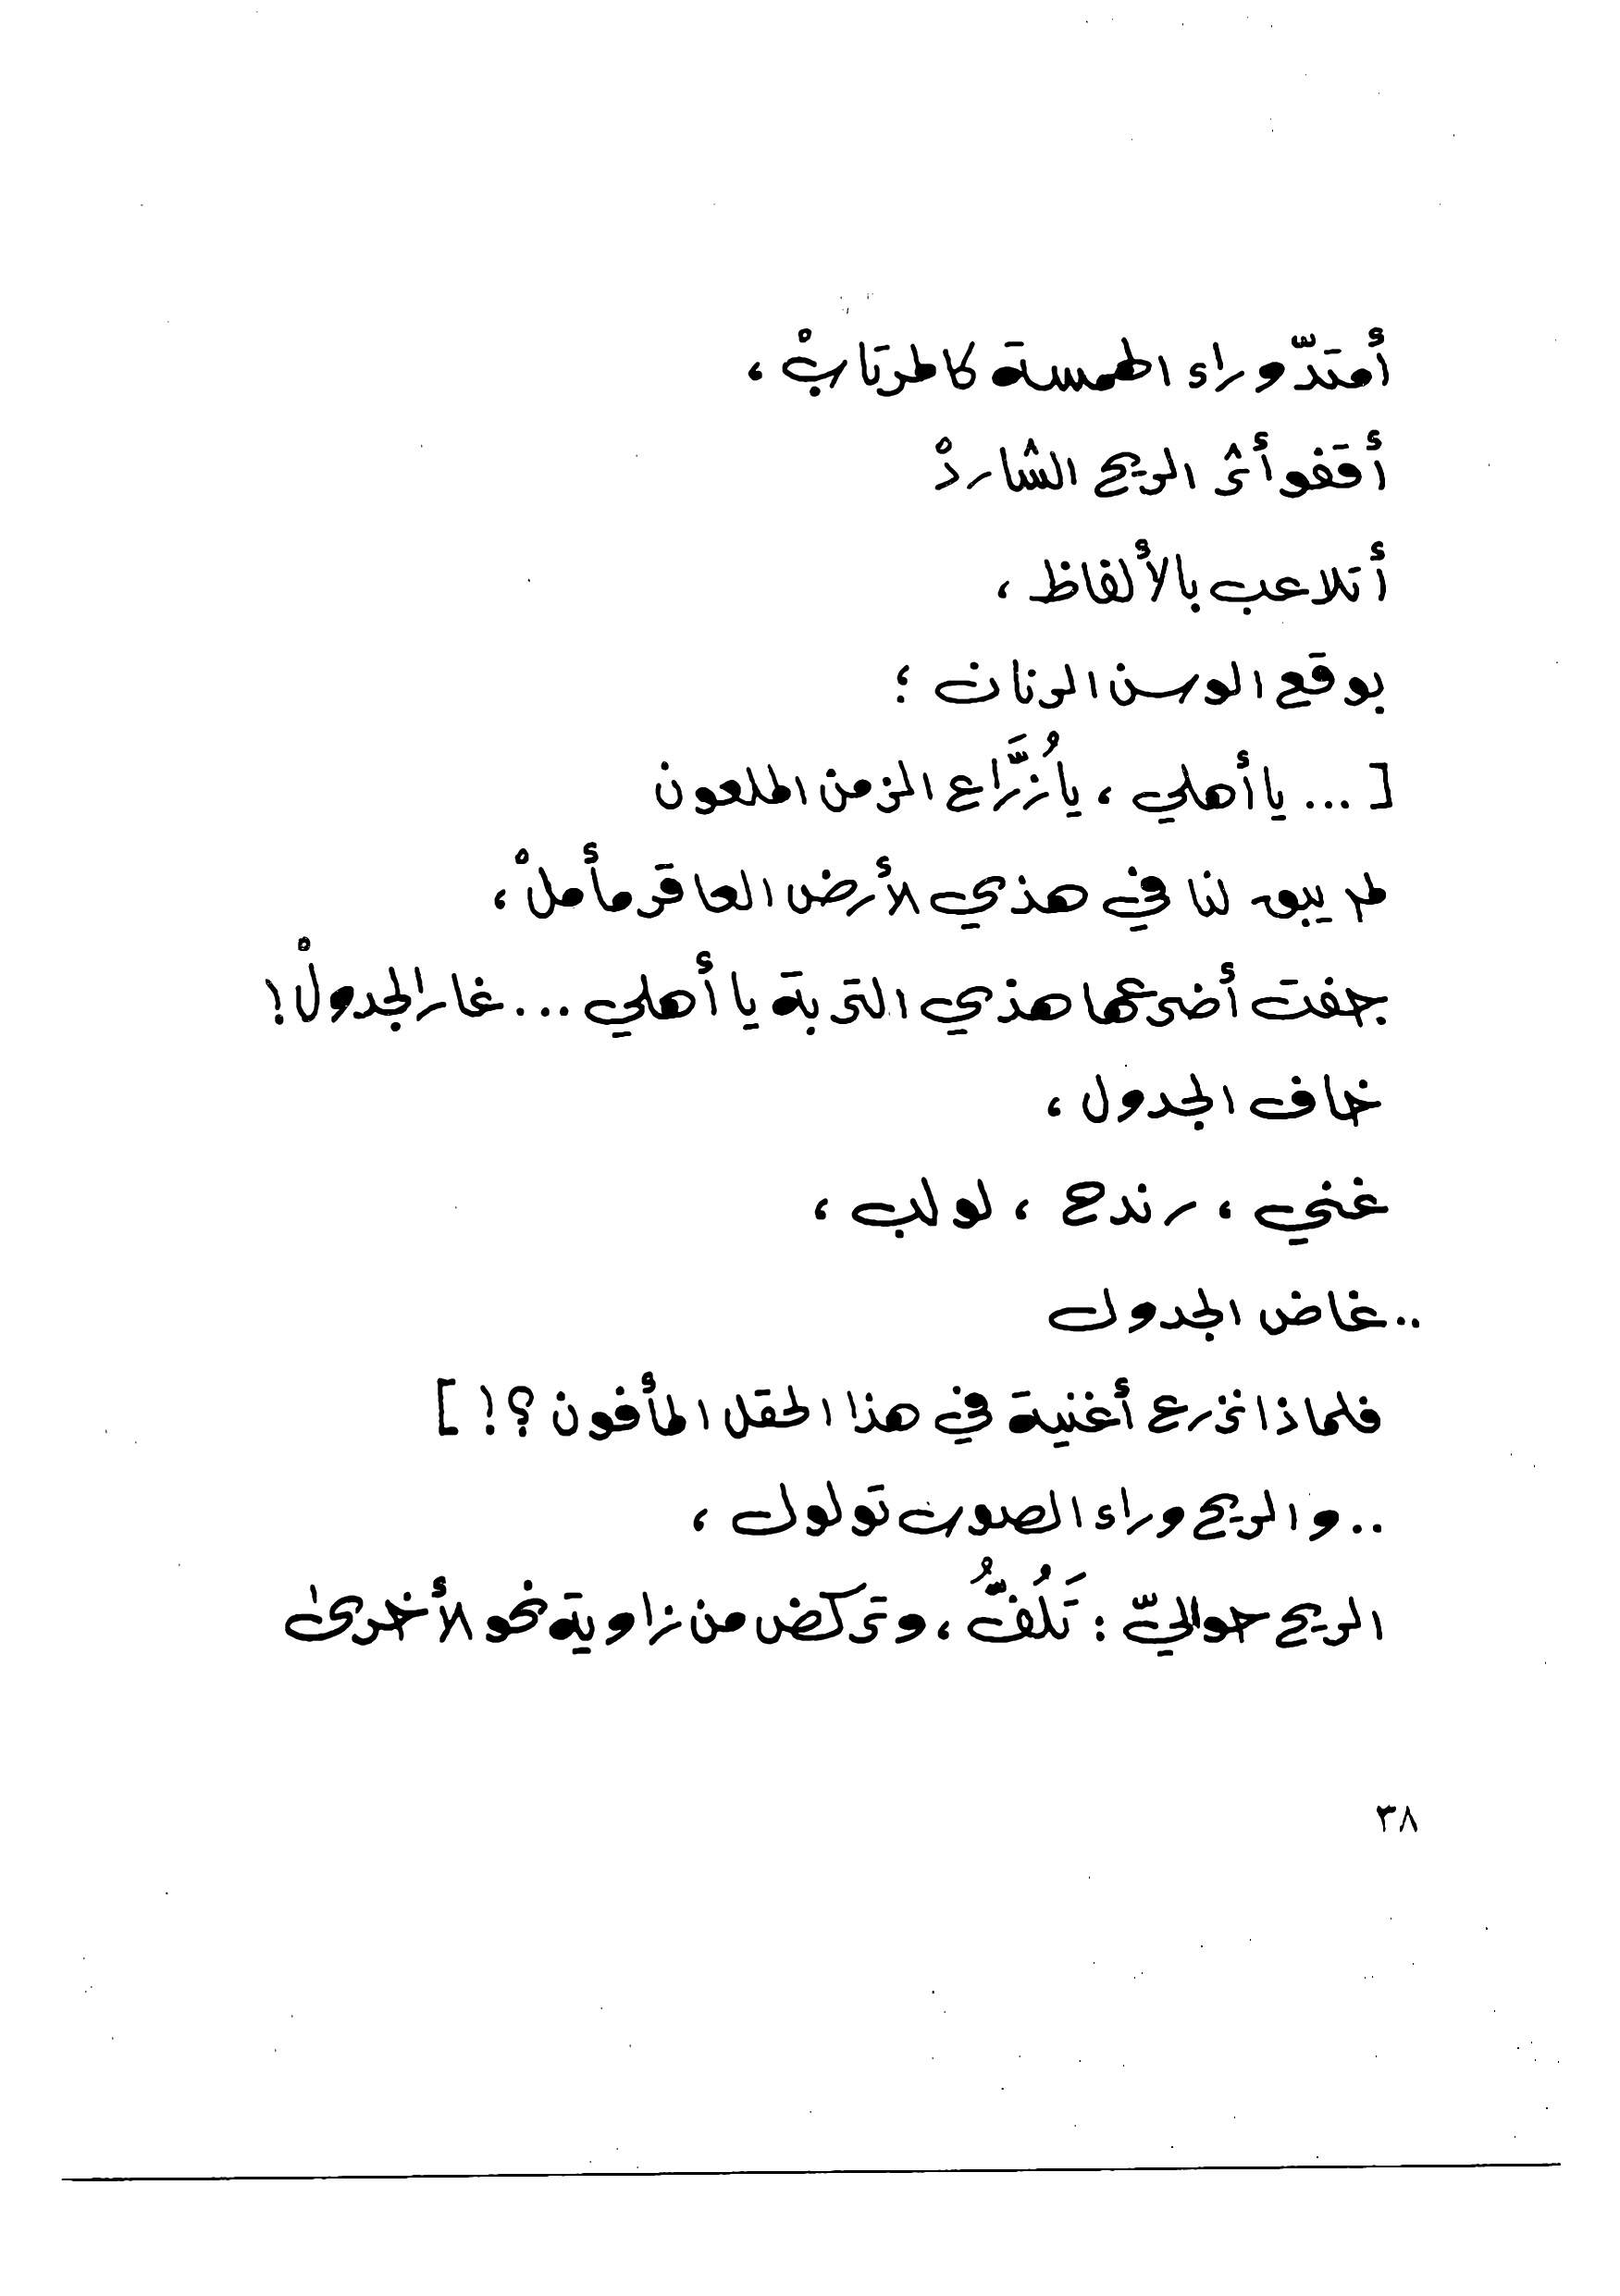 أمتدّ وراء الهمسة كالمرتابْ ،
أقفو أثر الريح الشاردْ
أتلاعب بالألفاظ ،
بوقع الوسن الرنان ؛
[ ... يا أهلي ، يا زُرَّاع الزمن الملعون
لم يبق لنا في هذي الأرض العاقر مأملْ ،
جفت أضرعها هذي التربة يا أهلي ... غار الجدولْ !
خاف الجدول ،
غنى ، رندح ، لولب ،
.. غاض الجدول
فلماذا نزرع أغنية في هذا الحقل المأفون ؟! ]
.. والريح وراء الصوت تولول ،
الريح حواليّ : تَلُفُّ ، وتركض من زاوية نحو الأخرى
٣٨